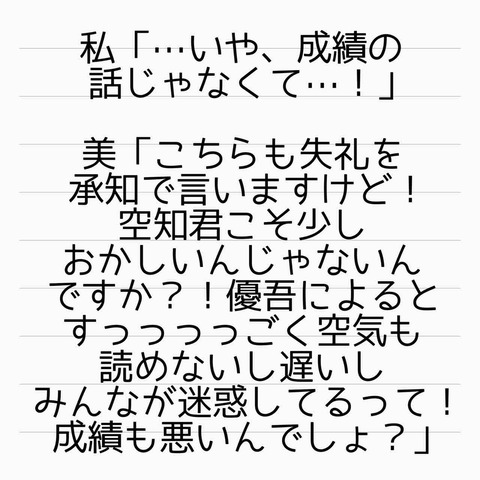 私「…いや、成績の
話じゃなくて…！」
美「こちらも失礼を
承知で言いますけど！
空知君こそ少し
おかしいんじゃないん
ですか？！優吾によると
すっっっっごく空気も
読めないし遅いし
みんなが迷惑してるって！
成績も悪いんでしょ？」